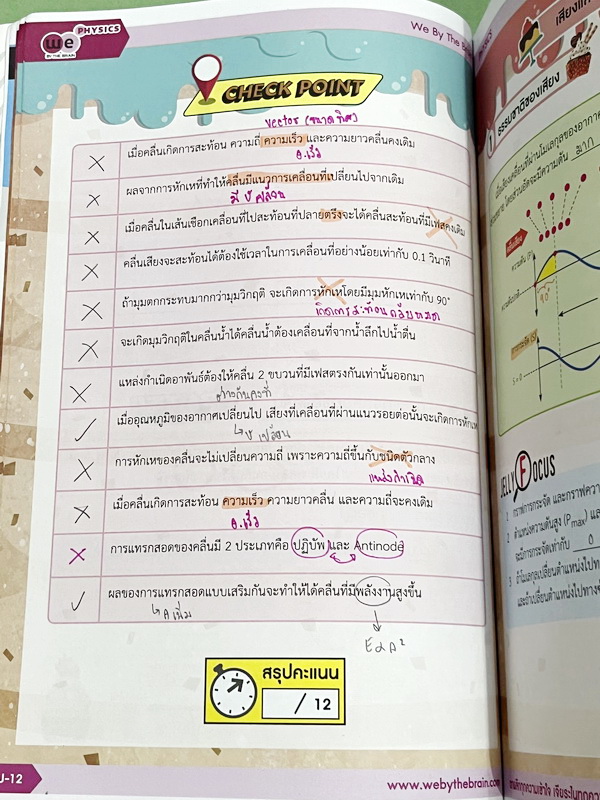 PHYSICS
We
BY THE BRAIN
We By The Brain
CHECK POINT
vector (ขนาด ทิศ)
X เมื่อคลื่นเกิดการสะท้อน ความถี่ ความเร็ว และความยาวคลื่นคงเดิม
อ.เร็ว
X ผลจากการหักเหที่ทำให้คลื่นมีแนวการเคลื่อนที่เปลี่ยนไปจากเดิม
X เมื่อคลื่นในเส้นเชือกเคลื่อนที่ไปสะท้อนที่ปลายตรึงจะได้คลื่นสะท้อนที่มีเฟสคงเดิม
X คลื่นเสียงจะสะท้อนได้ต้องใช้เวลาในการเคลื่อนที่อย่างน้อยเท่ากับ 0.1 วินาที
X ถ้ามุมตกกระทบมากกว่ามุมวิกฤติ จะเกิดการหักเหโดยมีมุมหักเหเท่ากับ 90°
เกิดการสะท้อนกลับหมด
X จะเกิดมุมวิกฤติในคลื่นน้ำได้คลื่นน้ำต้องเคลื่อนที่จากน้ำลึกไปน้ำตื้น
X แหล่งกำเนิดอาพันธ์ต้องให้คลื่น 2 ขบวนที่มีเฟสตรงกันเท่านั้นออกมา
ต่างกันคงที่
✓ เมื่ออุณหภูมิของอากาศเปลี่ยนไป เสียงที่เคลื่อนที่ผ่านแนวรอยต่อนั้นจะเกิดการหักเห
↳ v เปลี่ยน
X การหักเหของคลื่นจะไม่เปลี่ยนความถี่ เพราะความถี่ขึ้นกับชนิดตัวกลาง
แหล่งกำเนิด
X เมื่อคลื่นเกิดการสะท้อน ความเร็ว ความยาวคลื่น และความถี่จะคงเดิม
อ.เร็ว
X การแทรกสอดของคลื่นมี 2 ประเภทคือ ปฏิบัพ และ Antinode
✓ ผลของการแทรกสอดแบบเสริมกันจะทำให้ได้คลื่นที่มีพลังงานสูงขึ้น
↳ A เพิ่ม
E∝A²
สรุปคะแนน
/ 12
J-12
www.webythebrain.com
เสียงและ
1 ธรรมชาติของเสียง
เมื่อเสียงเคลื่อนที่ผ่านโมเลกุลของอากาศ
มาก
ความดัน (P)
90°
JELLY FOCUS
1 กราฟการกระจัด และกราฟความ
2 ตำแหน่งความดันสูง (Pmax) และ
จะมีการกระจัดเท่ากับ 0
3 ถ้าโมเลกุลเปลี่ยนตำแหน่งไปทาง
และถ้าเปลี่ยนตำแหน่งไปทาง